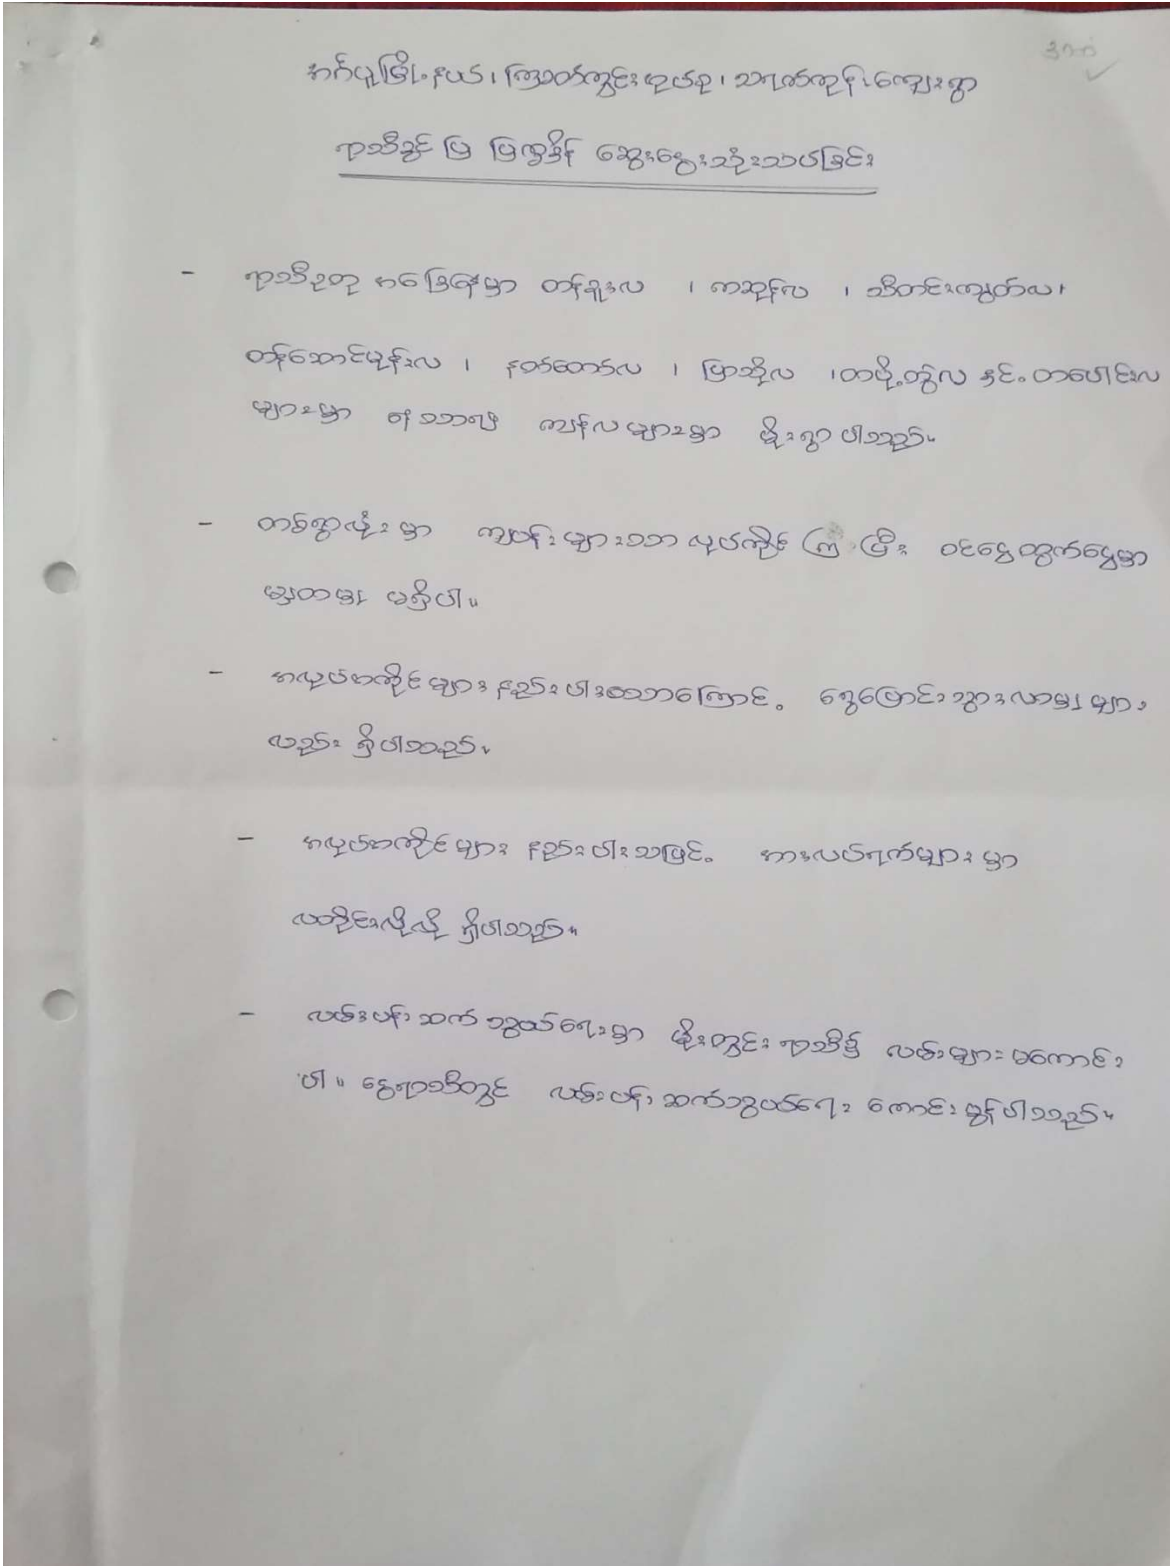 အင်္ဂပူမြို့နယ်၊ ကြွခတ်ကွင်းအုပ်စု၊ သရက်ကုန်းကျေးရွာ
ရာသီခွင် ပြ ပြက္ခဒိန် ဆွေးနွေးသုံးသပ်ခြင်း
- ရာသီဥတု အခြေနေမှာ တန်ခူးလ ၊ ကဆုန်လ ၊ သီတင်းကျွတ်လ၊
တန်ဆောင်မုန်းလ ၊ နတ်တော်လ ၊ ပြာသိုလ ၊တပို့တွဲလ နှင့် တပေါင်းလ
များမှာ နွေသာရပြီး ကျန်လများမှာ မိုးရွာပါသည်။
- တစ်ရွာလုံးမှာ ကျပန်းများသာ လုပ်ကိုင်ကြပြီး ဝင်ငွေထွက်ငွေမှာ
မျှတမှု မရှိပါ။
- အလုပ်အကိုင်များ နည်းပါးသောကြောင့် ရွှေ့ပြောင်းသွားလာမှုများ
လည်း ရှိပါသည်။
- အလုပ်အကိုင်များ နည်းပါးသဖြင့် အားလပ်ရက်များမှာ
လတိုင်းလိုလို ရှိပါသည်။
- လမ်းပန်းဆက်သွယ်ရေးမှာ မိုးတွင်းရာသီ၌ လမ်းများမကောင်း
ပါ။ နွေရာသီတွင် လမ်းပန်းဆက်သွယ်ရေး ကောင်းမွန်ပါသည်။